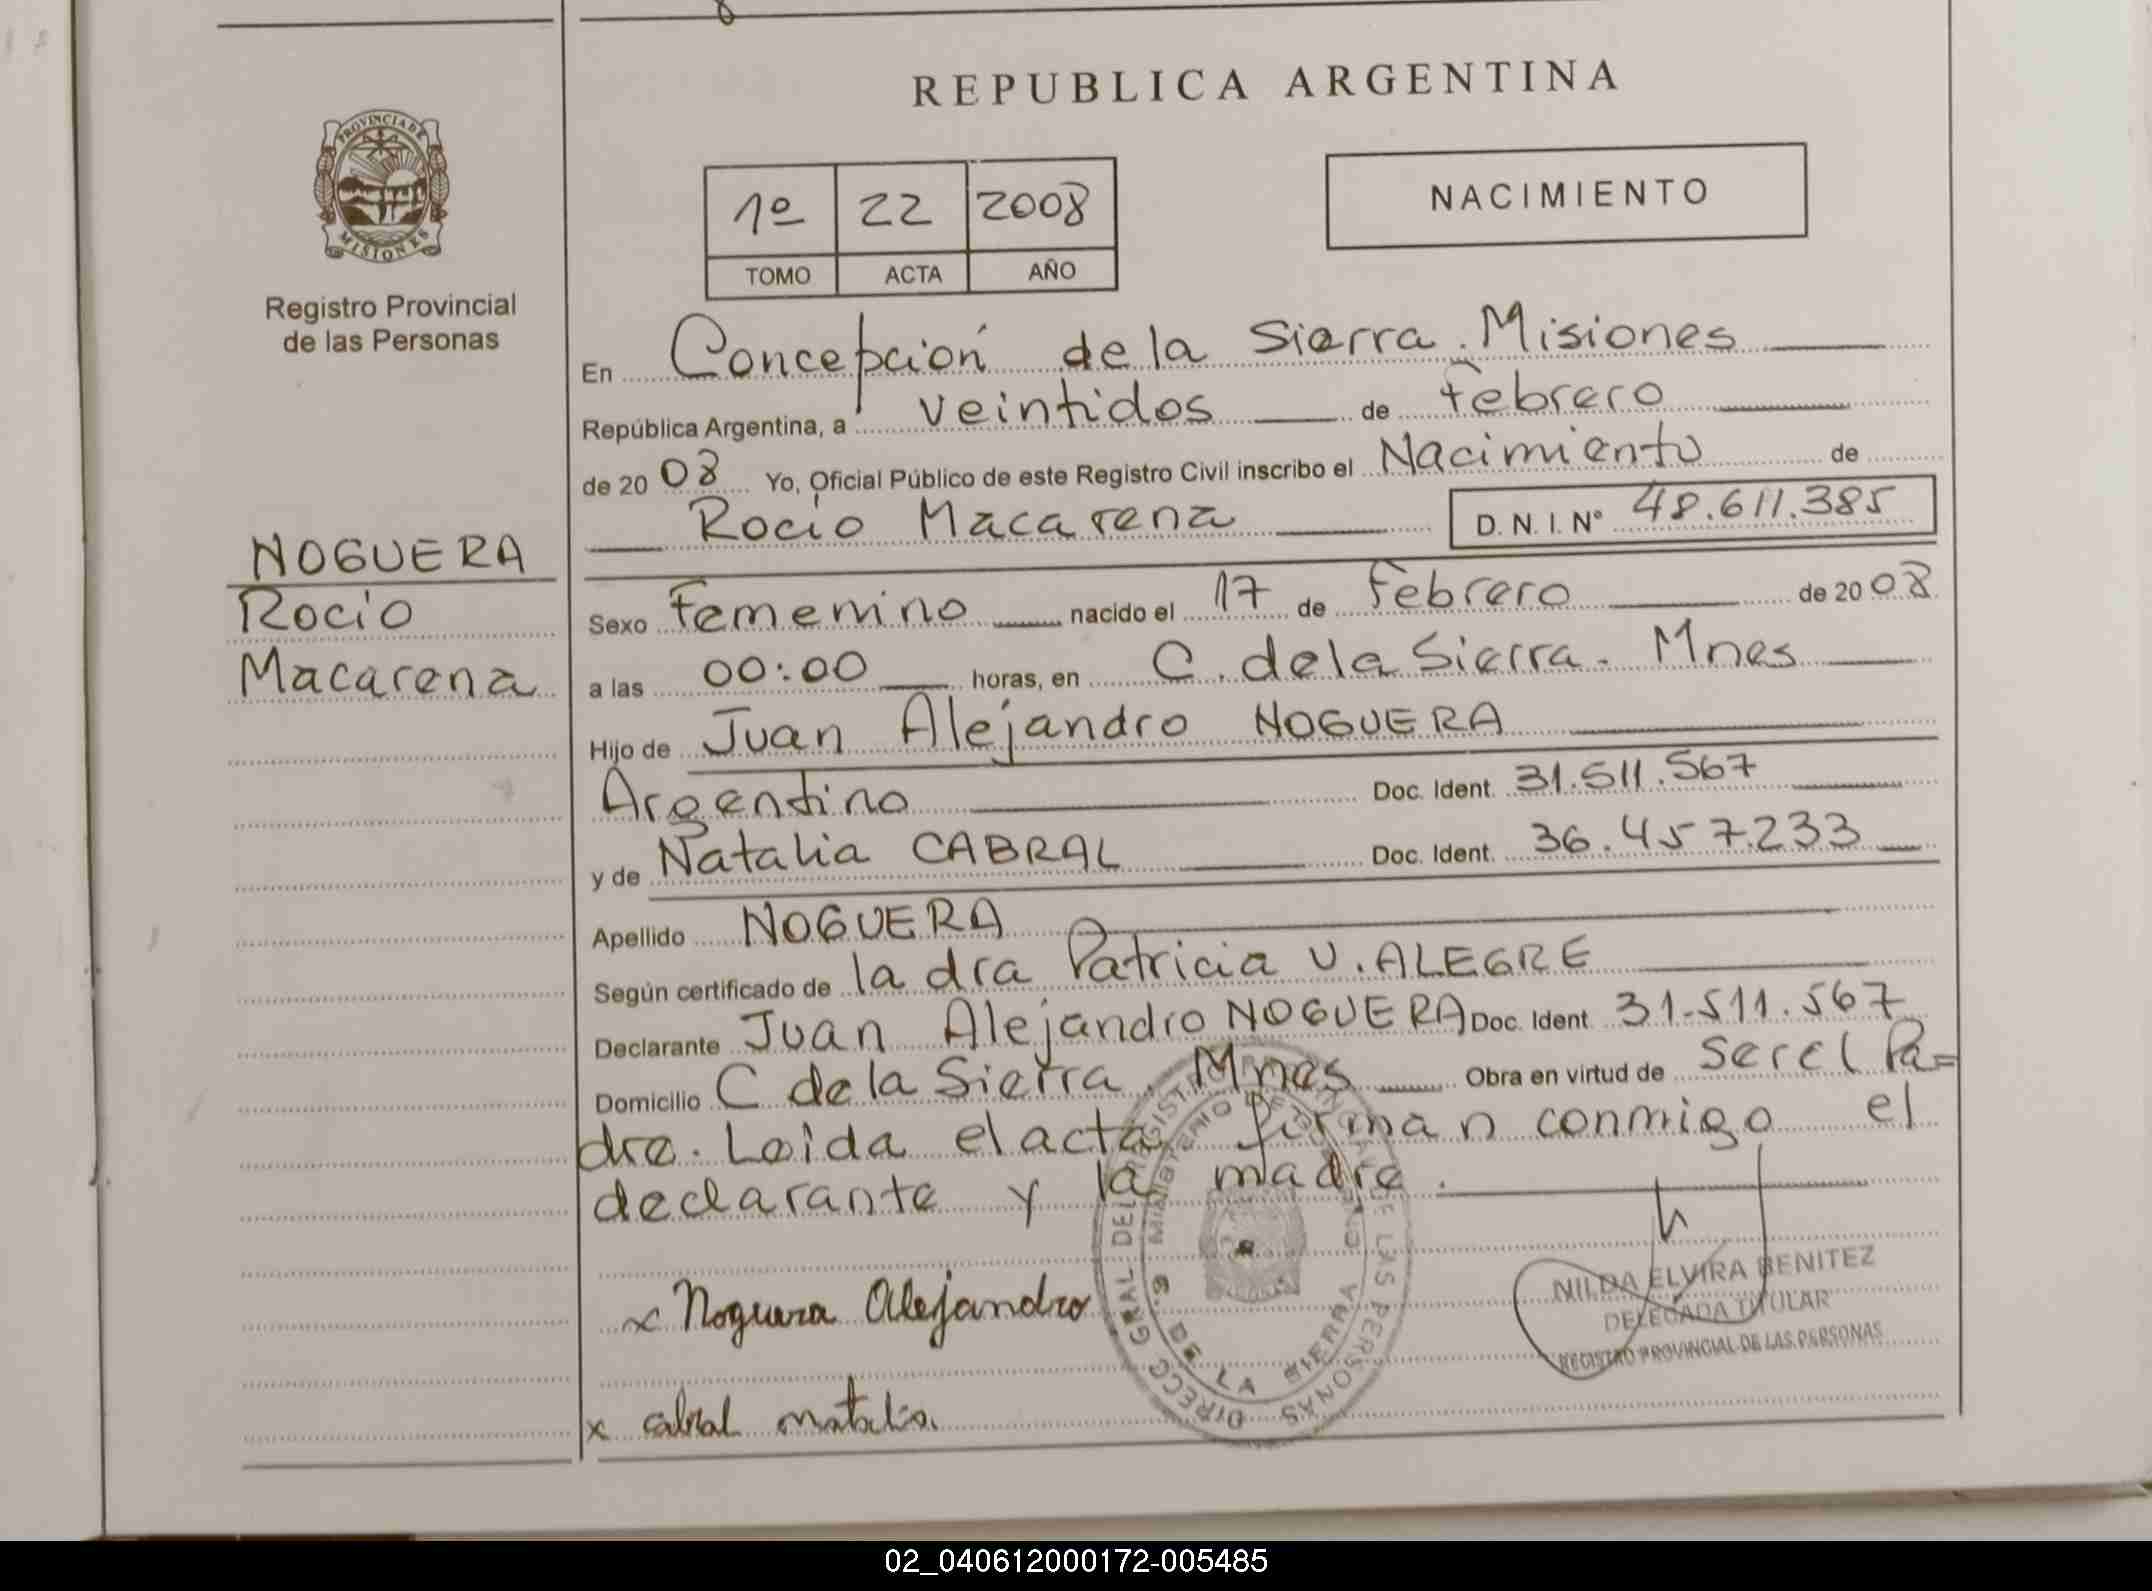 REPUBLICA ARGENTINA
PROVINCIA DE MISIONES
Registro Provincial
de las Personas
1º 22 2008
TOMO ACTA AÑO
NACIMIENTO
En Concepción de la Sierra. Misiones
República Argentina, a veintidos de febrero
de 20 08 Yo, Oficial Público de este Registro Civil inscribo el Nacimiento de
Rocio Macarena D. N. I. Nº 48.611.385
NOGUERA
Rocio
Macarena
Sexo Femenino nacido el 17 de Febrero de 20 08
a las 00:00 horas, en C. de la Sierra. Mnes
Hijo de Juan Alejandro NOGUERA
Argentino Doc. Ident. 31.511.567
y de Natalia CABRAL Doc. Ident. 36.457.233
Apellido NOGUERA
Según certificado de la dra Patricia V. ALEGRE
Declarante Juan Alejandro NOGUERA Doc. Ident. 31.511.567
Domicilio C de la Sierra. Mnes Obra en virtud de ser el Pa=
dre. Leida el acta firman conmigo el
declarante y la madre.
x Noguera Alejandro
x cabral natalia.
DIRECC GRAL DEL REGISTRO PROVINCIAL DE LAS PERSONAS
MINISTERIO DE GOBIERNO
C. DE LA SIERRA
NILDA ELVIRA BENITEZ
DELEGADA TITULAR
REGISTRO PROVINCIAL DE LAS PERSONAS
02_040612000172-005485